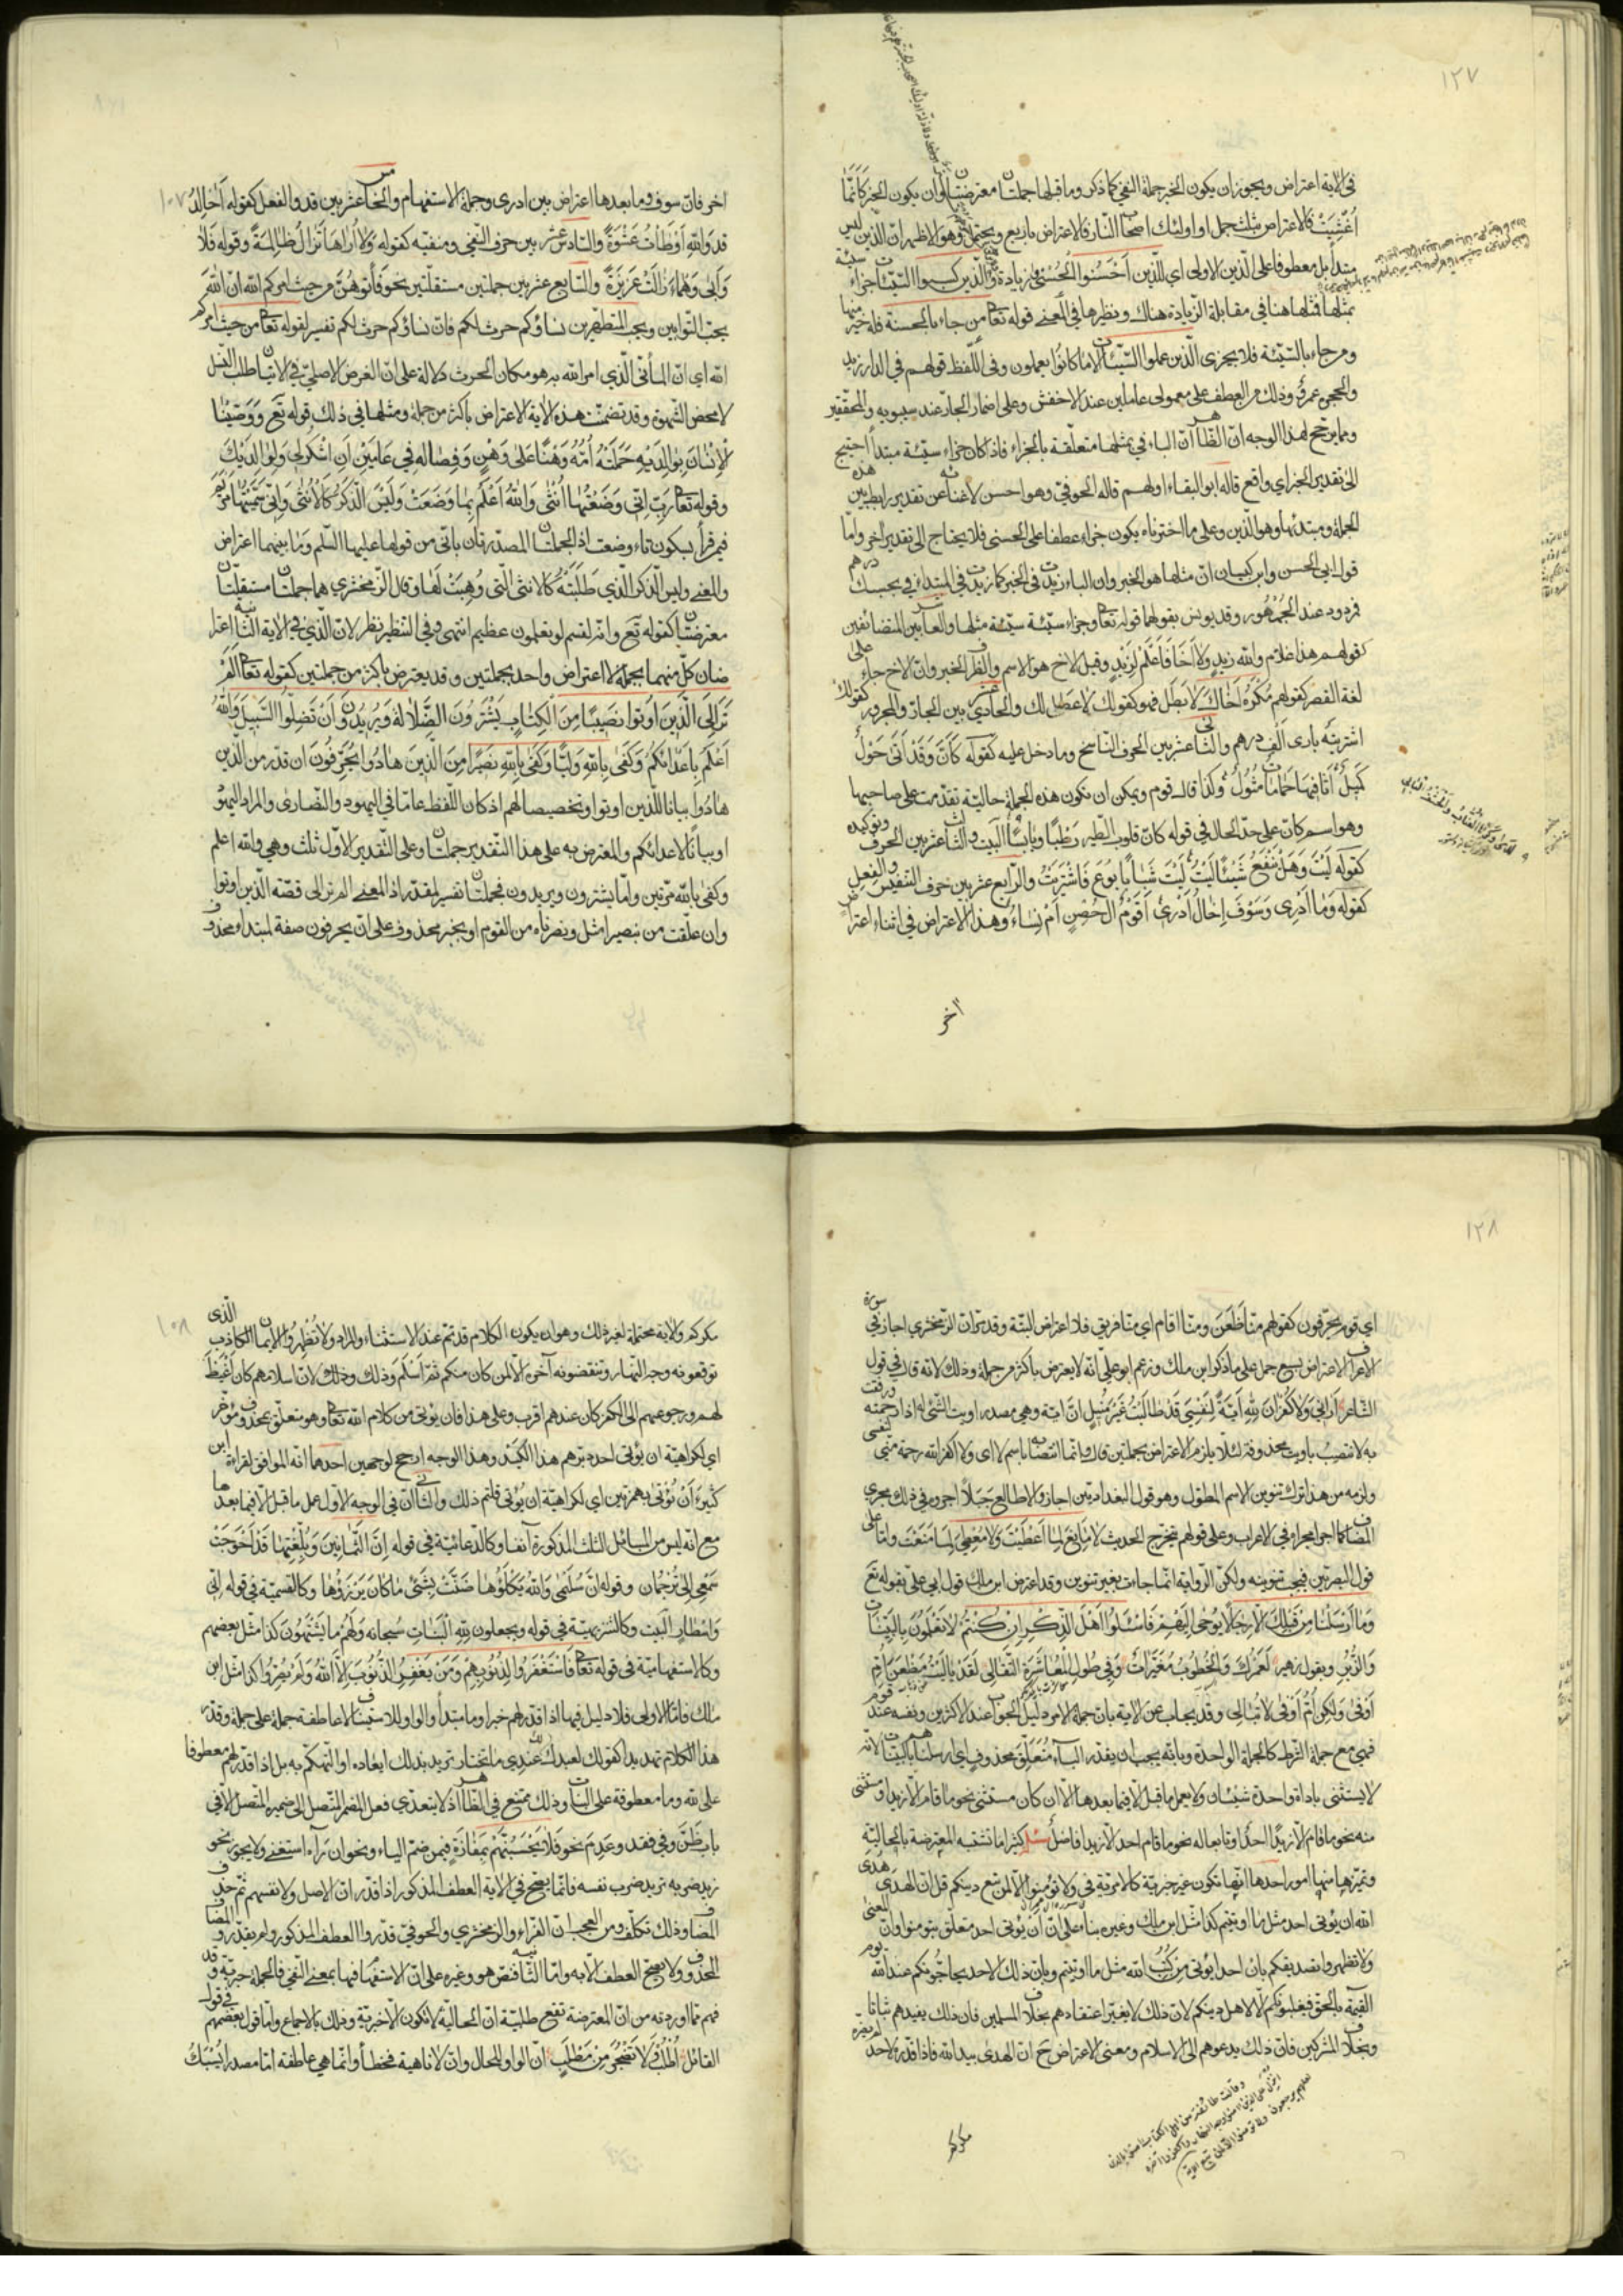 ١٢٧
فى الاية اعتراض ويجوز ان يكون الخبر جملة النفى كما ذكر وما قبلها جملتان معترضتان وان يكون الخبر كَاَنَّمَا
اُغْشِيَتْ فالاعتراض بثلث جمل او اولئك اصحاب النار فالاعتراض باربع ويحتمل وهو الاظهر ان الذين ليس
مبتدأ بل معطوفا على الذين الاولى اى للذين اَحْسَنُوا الْحُسْنى وزيادة والذين كسبوا السيئات جزاء سيئة
بمثلها فمثلها هنا فى مقابلة الزيادة هناك ونظيرها فى المعنى قوله تعالى من جاء بالحسنة فله خير منها
ومن جاء بالسيئة فلا يجزى الذين عملوا السيئات الا ما كانوا يعملون وفى اللفظ قولهم فى الدار زيد
والحجرة عمرو وذلك من العطف على معمولى عاملين عند الاخفش وعلى اضمار الجار عند سيبويه والمحققين
ومما يرجح هذا الوجه ان الظاهر ان الباء فى بمثلها متعلقة بالجزاء فاذا كان جزاء سيئة مبتدأ احتيج
الى تقدير الخبر اى واقع قاله ابو البقاء او لهم قاله الحوفى وهو احسن لاغنائه عن تقدير رابط بين هذه
الجملة ومبتدئها وهو الذين وعلى ما اخترناه يكون جزاء عطفا على الحسنى فلا يحتاج الى تقدير اخر واما
قول ابى الحسن وابن كيسان ان مثلها هو الخبر وان الباء زيدت فى الخبر كما زيدت فى المبتدأ فى بحسبك درهم
فمردود عند الجمهور وقد يونس بقولهما قوله تعالى وجزاء سيئة سيئة مثلها والعاشر بين المتضائفين
كقولهم هذا غلام والله زيد ولا اخا فاعلم لزيد وقيل الاخ هو الاسم والظرف الخبر وان الاخ جاء على
لغة القصر كقولهم مُكْرَهٌ اَخَاكَ لابطل فهو كقولك لا عصا لك والحادى عشر بين الجار والمجرور كقولك
اشتريته بارى الف درهم والثانى عشر بين الحرف الناسخ وما دخل عليه كقوله كَاَنَّ وَقَدْ اَتى حَوْلٌ
كَمِيلٌ اَثَافِيهَا حَمَامَاتٌ مُثُولُ وكذا قال قوم ويمكن ان تكون هذه الجملة حالية تقدمت على صاحبها
وهو اسم كان على حد الحال فى قوله كانّ قلوب الطير رطبا ويابسا البيت والثالث عشر بين الحرف وتوكيده
كقوله لَيْتَ وَهَلْ يَنْفَعُ شَيْئًا لَيْتُ لَيْتَ شَبابًا بُوعَ فَاشْتَرَيْتُ والرابع عشر بين حرف التنفيس والفعل
كقوله وَمَا اَدْرِى وَسَوْفَ اِخَالُ اَدْرِى اَقَوْمٌ الُ حِصْنٍ اَمْ نِسَاءُ وهذا الاعتراض فى اثناء اعتراض
اخر
١٠٧
اخر فان سوف وما بعدها اعتراض بين ادرى وجملة الاستفهام والخامس عشر بين قد والفعل كقوله اَخَالِدُ
قد وَاللهِ اَوْطَأتَ عَشْوَةً والسادس عشر بين حرف النفى ومنفيه كقوله وَلَا اَرَاهَا تَزَالُ ظَالِمَةً وقوله فَلَا
وَاَبى دَهْمَاءَ زَالَتْ عَزِيزَةً والسابع عشر بين جملتين مستقلتين نحو فَأتوهُنَّ من حيث امركم الله ان الله
يحب التوابين ويحب المتطهرين نساؤكم حرث لكم فان نساؤكم حرث لكم تفسير لقوله تعالى من حيث امركم
الله اى ان المأتى الذى امر الله به هو مكان الحرث دلالة على ان الغرض الاصلى فى الاتيان طلب النسل
لا محض الشهوة وقد تضمنت هذه الاية الاعتراض باكثر من جملة ومثلها فى ذلك قوله تع وَوَصَّيْنَا
الْاِنْسَانَ بِوَالِدَيْهِ حَمَلَتْهُ اُمُّهُ وَهْنًا عَلى وَهْنٍ وَفِصَالُهُ فِى عَامَيْنِ اَنِ اشْكُرْ لِى وَلِوَالِدَيْكَ
وقوله تعالى رَبِّ اِنِّى وَضَعْتُهَا اُنْثى وَاللهُ اَعْلَمُ بِمَا وَضَعَتْ وَلَيْسَ الذَّكَرُ كَالْاُنْثى وَاِنِّى سَمَّيْتُهَا مَرْيَمَ
فيمن قرأ بسكون تاء وضعت اذ الجملتان المصدرتان بانى من قولها عليها السلم وما بينهما اعتراض
والمعنى وليس الذكر الذى طَلَبَتْهُ كالانثى التى وُهِبَتْ لها وقال الزمخشرى هما جملتان مستقلتان
معترضتان كقوله تع وانه لقسم لو تعلمون عظيم انتهى وفى التنظير نظر لان الذى فى الاية الثانية اعترا
ضان كل منهما بجملة لا اعتراض واحد بجملتين وقد يعترض باكثر من جملتين كقوله تعالى اَلَمْ
تَرَ اِلَى الَّذِينَ اُوتُوا نَصِيبًا مِنَ الْكِتَابِ يَشْتَرُونَ الضَّلَالَةَ وَيُرِيدُونَ اَنْ تَضِلُّوا السَّبِيلَ وَاللهُ
اَعْلَمُ بِاَعْدَائِكُمْ وَكَفى بِاللهِ وَلِيًّا وَكَفى بِاللهِ نَصِيرًا مِنَ الَّذِينَ هَادُوا يُحَرِّفُونَ ان قدر من الذين
هادوا بيانا للذين اوتوا وتخصيصا لهم اذ كان اللفظ عاما فى اليهود والنصارى والمراد اليهود
او بيانا لاعدائكم والمعترض به على هذا التقدير جملتان وعلى التقدير الاول ثلث وهى والله اعلم
وكفى بالله مرتين واما يشترون ويريدون فجملتا تفسير لمقدر اذ المعنى الم تر الى قصة الذين اوتوا
وان علقت من بنصيرا مثل ونصرناه من القوم او بخبر محذوف على ان يحرفون صفة لمبتدأ محذوف
١٢٨
اى قوم يحرفون كقولهم منا ظَعَنَ ومنا اقام اى منا فريق فلا اعتراض البتة وقد مر ان الزمخشرى اجاز فى سورة
الاعراف الاعتراض بسبع جمل على ما ذكر ابن ملك وزعم ابو على انه لا يعترض باكثر من جملة وذلك لانه قال فى قول
الشاعر اَرَانِى وَلَا كُفْرَانَ لِلهِ اَيَّةً لِنَفْسِى قَدْ طَالَبْتُ غَيْرَ مُنِيلِ ان اية وهى مصدر اويت الشئ له اذا رحمته ورفقت
به لا تنتصب باويت محذوفة لئلا يلزم الاعتراض بجملتين قال وانما انتصابه باسم لا اى ولا اكفر الله رحمة منى لنفسى
ولزمه من هذا ترك تنوين الاسم المطول وهو قول البغداديين اجازوا لا طالع جبلا اجروه فى ذلك مجرى
المضاف كما اجرى مجراه فى الاعراب وعلى قولهم يتخرج الحديث لا مَانِعَ لِمَا اَعْطَيْتَ وَلَا مُعْطِىَ لِمَا مَنَعْتَ واما على
قول البصريين فيجب تنوينه ولكن الرواية انما جاءت بغير تنوين وقد اعترض ابن ملك قول ابى على بقوله تع
وَمَا اَرْسَلْنَا مِنْ قَبْلِكَ اِلَّا رِجَالًا يُوحى اِلَيْهِمْ فَاسْئَلُوا اَهْلَ الذِّكْرِ اِنْ كُنْتُمْ لَا تَعْلَمُونَ بِالْبَيِّنَاتِ
وَالزُّبُرِ وبقول زهير لَعَمْرُكَ وَالْخُطُوبُ مُغَيِّرَاتٌ وَفِى طُولِ الْمُعَاشَرَةِ التَّقَالِى لَقَدْ بَالَيْتُ مَظْعَنَ اُمِّ
اَوْفى وَلكِنْ اُمُّ اَوْفى لَا تُبَالِى وقد يجاب عن الاية بان جملة الامر دليل الجواب عند الاكثرين ونفسه عند قوم
فهى مع جملة الشرط كالجملة الواحدة وبانه يجب ان يقدر للباء مُتَعَلَّق محذوف اى ارسلناهم بالبينات لانه
لا يستثنى باداة واحدة شيئان ولا يعمل ما قبل الا فيما بعدها الا ان كان مستثنى نحو ما قام الا زيد او مستثنى
منه نحو ما قام الا زيدا احد او تابعا له نحو ما قام احد الا زيدا فاضل مسئلة كثيرا ما تشتبه المعترضة بالحالية
ويميزها منها امور احدها انها تكون غير خبرية كالامرية فى ولا تؤمنوا الا لمن تبع دينكم قل ان الهدى هُدَى
الله ان يؤتى احد مثل ما اوتيتم كذا مثل ابن مالك وغيره بناء على ان ان يؤتى احد متعلق بتؤمنوا وان المعنى
ولا تظهروا تصديقكم بان احدا يؤتى من كُتُب الله مثل ما اوتيتم وبان ذلك الاحد يحاجونكم عند الله يوم
القيمة بالحق فيغلبونكم الا لاهل دينكم لان ذلك لا يغير اعتقادهم بخلاف المسلمين فان ذلك يفيدهم ثباتا
وبخلاف المشركين فان ذلك يدعوهم الى الاسلام ومعنى الاعتراض ح ان الهدى بيد الله فاذا قدره لاحد لم يضره
مكركم
١٠٨
مكركم والاية محتملة لغير ذلك وهو ان يكون الكلام قد تم عند الاستثناء والمراد ولا تُظْهِرُوا الايمان الكاذب الذى
توقعونه وجه النهار وتنقضونه آخره الا لمن كان منكم ثم اَسْلَمَ وذلك وذلك لان اسلامهم كان اَغْيَظَ
لهم ورجوعهم الى الكفر كان عندهم اقرب وعلى هذا فان يؤتى من كلام الله تعالى وهو متعلق بمحذوف مؤخر
اى لكراهية ان يؤتى احد دبرتم هذا الكيد وهذا الوجه ارجح لوجهين احدهما انه الموافق لقراءة ابن
كثير أَنْ يُؤْتى بهمزتين اى لكراهية ان يؤتى قلتم ذلك والثانى ان فى الوجه الاول عمل ما قبل الا فيما بعدها
مع انه ليس من المسائل الثلث المذكورة آنفا وكالدعائية فى قوله اِنَّ الثَّمَانِينَ وَبُلِّغْتَهَا قَدْ اَحْوَجَتْ
سَمْعِى اِلى تُرْجُمَان وقوله اِنَّ سُلَيْمى وَاللهُ يَكْلَؤُهَا ضَنَّتْ بِشَىْءٍ مَا كَانَ يَرْزَؤُهَا وكالقسمية فى قوله اِنِّى
وَاَسْطَارٍ البيت وكالتنزيهية فى قوله ويجعلون لِلهِ الْبَنَاتِ سُبحانه وَلَهُمْ مَا يَشْتَهُونَ كذا مثل بعضهم
وكالاستفهامية فى قوله تعالى فَاسْتَغْفَرُوا لِذُنُوبِهِمْ وَمَنْ يَغْفِرُ الذُّنُوبَ اِلَّا اللهُ وَلَمْ يُصِرُّوا كذا مثل ابن
ملك فاما الاولى فلا دليل فيها اذا قدر لهم خبرا وما مبتدأ والواو للاستيناف لا عاطفة جملة على جملة وقدر
هذا الكلام تهديدا كقولك لعبدك عندى ما تختار تريد بذلك ايعاده او التهكم به بل اذا قدر لهم معطوفا
على لله وما معطوفة على البنات وذلك ممتنع فى الظاهر اذ لا يتعدى فعل المضمر المتصل الى ضميره المتصل الا فى
باب ظَنَّ وفى فقد وعَدِمَ نحو فَلَا يَحْسَبُنَّهُمْ بِمَفَازَةٍ فيمن ضم الياء ونحو ان رَآهُ استغنى ولا يجوز نحو
زيد ضربه تريد ضرب نفسه فانما يصح فى الاية العطف المذكور اذا قدر ان الاصل ولانفسهم ثم حذف
المضاف وذلك تكلف ومن العجب ان الفراء والزمخشرى والحوفى قدروا العطف المذكور ولم يقدروا المضاف
المحذوف ولا يصح العطف الا به واما الثانية فنص هو وغيره على ان الاستفهام فيها بمعنى النفى فالجملة خبرية وقد
فهم مما اوردته من ان المعترضة تقع طلبية ان الحالية لا تكون الا خبرية وذلك بالاجماع واما قول بعضهم فى قول
القائل اُطْلُبْ وَلَا تَضْجَرَ مِنْ مَطْلَبٍ ان الواو للحال وان لا ناهية فخطأ وانما هى عاطفة اما مصدرا يُسْبَكُ